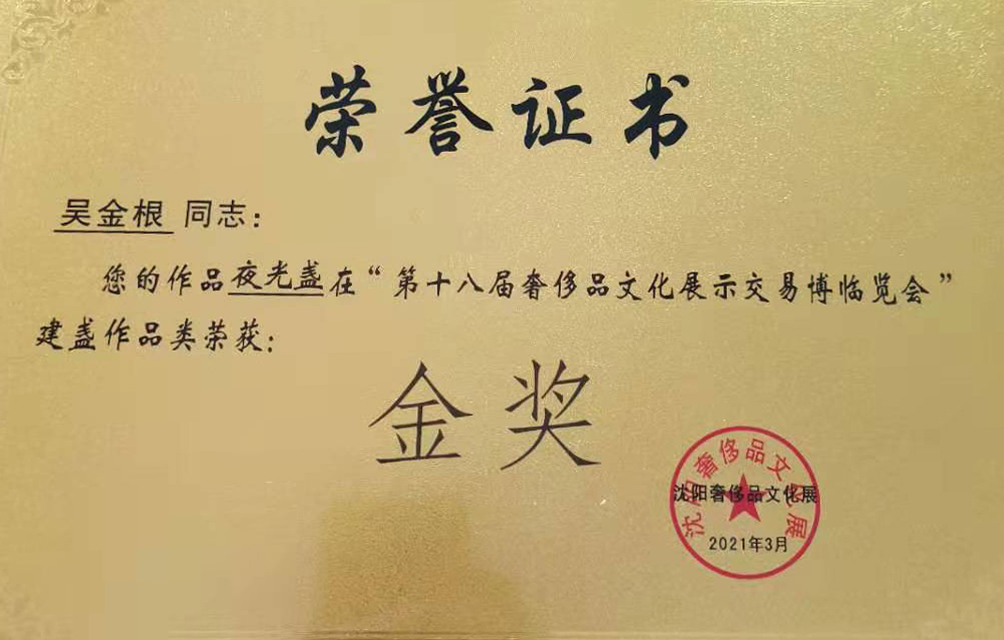 荣誉证书
吴金根 同志：
您的作品夜光盏在“第十八届奢侈品文化展示交易博临览会”
建盏作品类荣获：
金奖
沈阳奢侈品文化展
沈阳奢侈品文化展
2021年3月